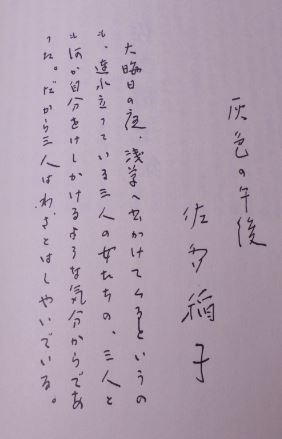 灰色の午後
佐多稲子
大晦日の夜、浅草へ出かけてくるというの
も、連れ立っている三人の女たちの、三人と
も何か自分をけしかけるような気分からであ
った。だから三人はわざとはしゃいでいる。